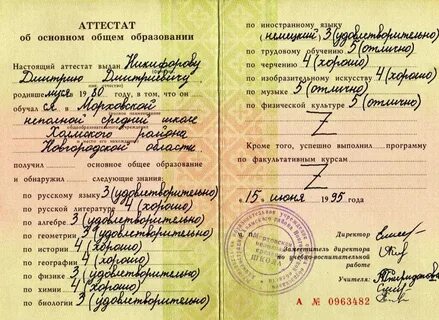 АТТЕСТАТ
об основном общем образовании
Настоящий аттестат выдан Никифорову
Дмитрию Дмитриевичу
родившемуся 1980 году, в том, что он
обучался в Морховской
неполной средней школе
Холмского района
Новгородской области
получил основное общее образование
и обнаружил следующие знания:
по русскому языку 3 (удовлетворительно)
по русской литературе 4 (хорошо)
по алгебре 3 (удовлетворительно)
по геометрии 3 (удовлетворительно)
по истории 4 (хорошо)
по географии 4 (хорошо)
по физике 3 (удовлетворительно)
по химии 4 (хорошо)
по биологии 3 (удовлетворительно)
по иностранному языку
(немецкий) 3 (удовлетворительно)
по трудовому обучению 5 (отлично)
по черчению 4 (хорошо)
по изобразительному искусству 4 (хорошо)
по музыке 5 (отлично)
по физической культуре 5 (отлично)
Z
Кроме того, успешно выполнил программу
по факультативным курсам
Z
«15» июня 1995 года
Директор
Заместитель директора
по учебно-воспитательной
работе
Учителя:
ШКОЛА
А № 0963482